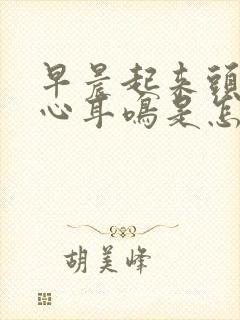 早晨起来頭
心耳鳴是怎
胡美峰